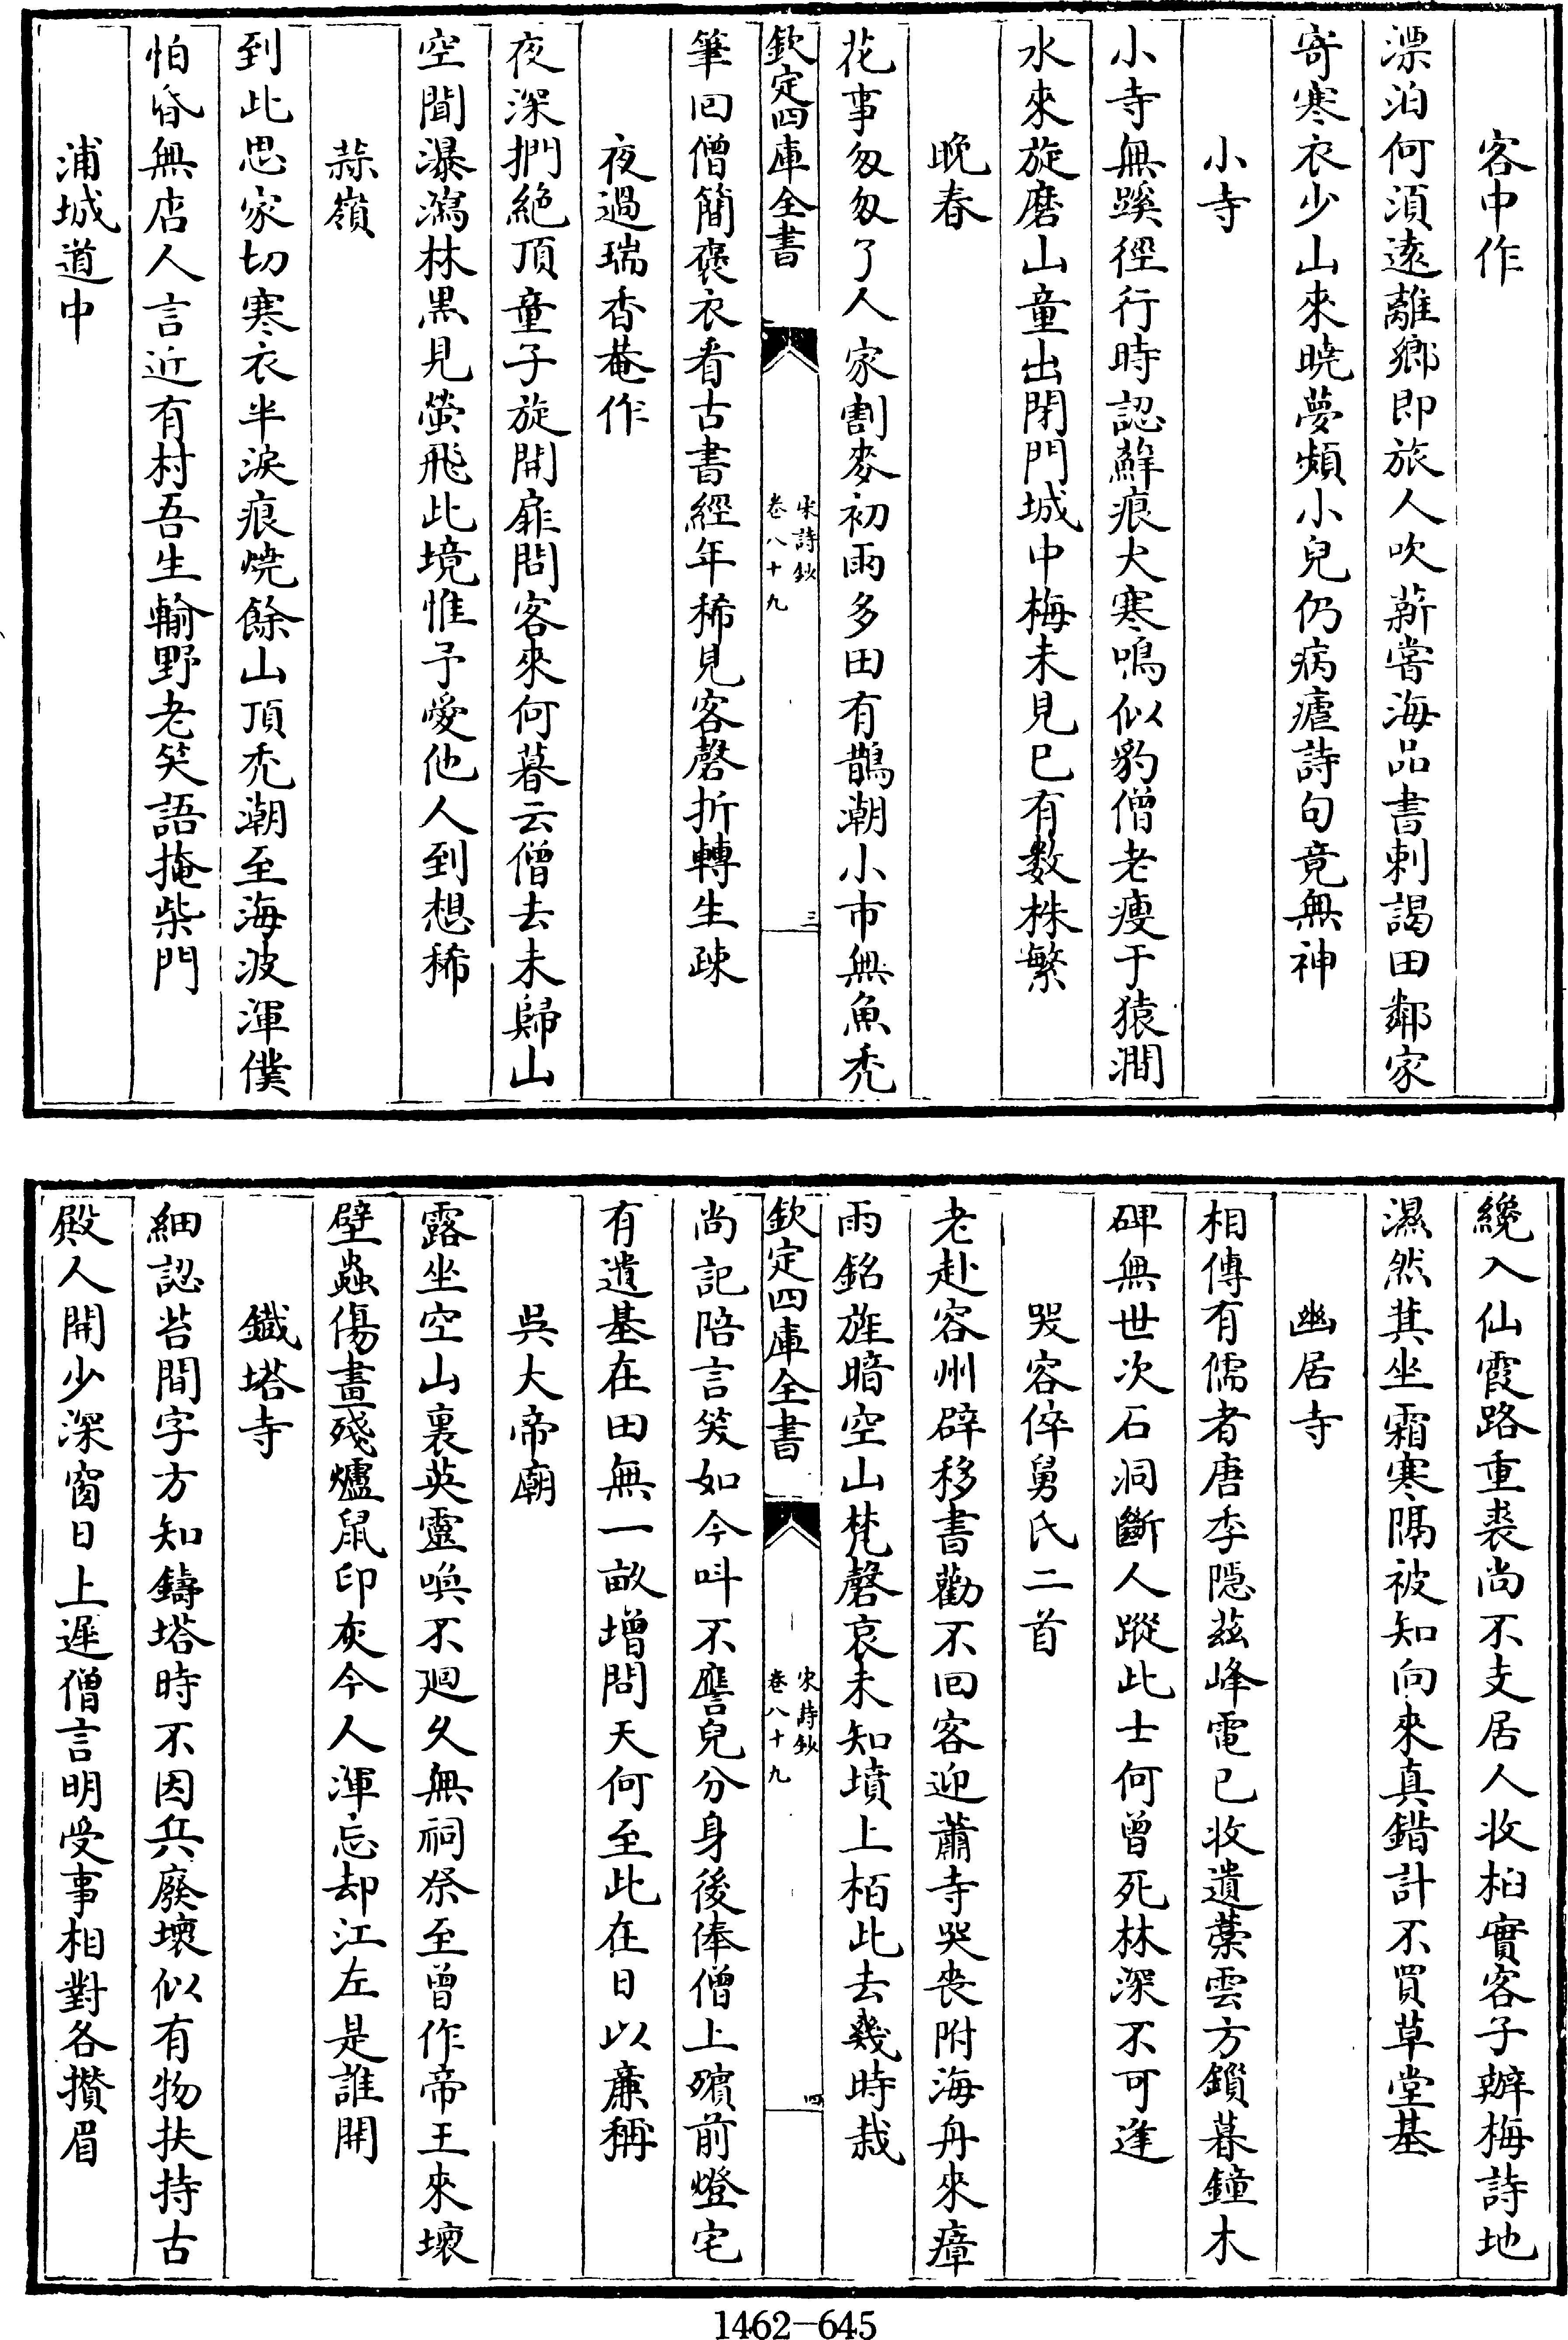 客中作
漂泊何須遠離鄉即旅人吹薪嘗海品書刺謁田鄰家
寄寒衣少山來曉夢頻小兒仍病瘧詩句竟無神
小寺
小寺無蹊徑行時認蘚痕犬寒鳴似豹僧老瘦于猿澗
水來旋磨山童出閉門城中梅未見已有數株繁
晚春
花事匆匆了人家割麥初雨多田有鵲潮小市無魚禿
欽定四庫全書
宋詩鈔
卷八十九
三
筆回僧簡褒衣看古書經年稀見客磬折轉生疎
夜過瑞香菴作
夜深捫絶頂童子旋開扉問客來何暮云僧去未歸山
空聞瀑瀉林黑見螢飛此境惟予愛他人到想稀
蒜嶺
到此思家切寒衣半淚痕燒餘山頂禿潮至海波渾僕
怕昏無店人言近有村吾生輸野老笑語掩柴門
浦城道中
纔入仙霞路重裘尚不支居人收桕實客子辦梅詩地
濕然萁坐霜寒隔被知向來真錯計不買草堂基
幽居寺
相傳有儒者唐季隱茲峰電已收遺藁雲方鎖暮鐘木
碑無世次石洞斷人蹤此士何曾死林深不可逢
哭容倅舅氏二首
老赴容州辟移書勸不回客迎蕭寺哭喪附海舟來瘴
雨銘旌暗空山梵磬哀未知墳上栢此去幾時栽
欽定四庫全書
宋詩鈔
卷八十九
四
尚記陪言笑如今呌不譍兒分身後俸僧上殯前燈宅
有遺基在田無一畝增問天何至此在日以廉稱
吳大帝廟
露坐空山裏英靈喚不廻久無祠祭至曾作帝王來壞
壁蟲傷畫殘爐鼠印灰今人渾忘却江左是誰開
鐵塔寺
細認苔間字方知鑄塔時不因兵廢壞似有物扶持古
殿人開少深窗日上遲僧言明受事相對各攢眉
1462-645